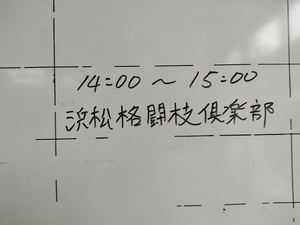 14:00 〜 15:00
浜松格闘技倶楽部